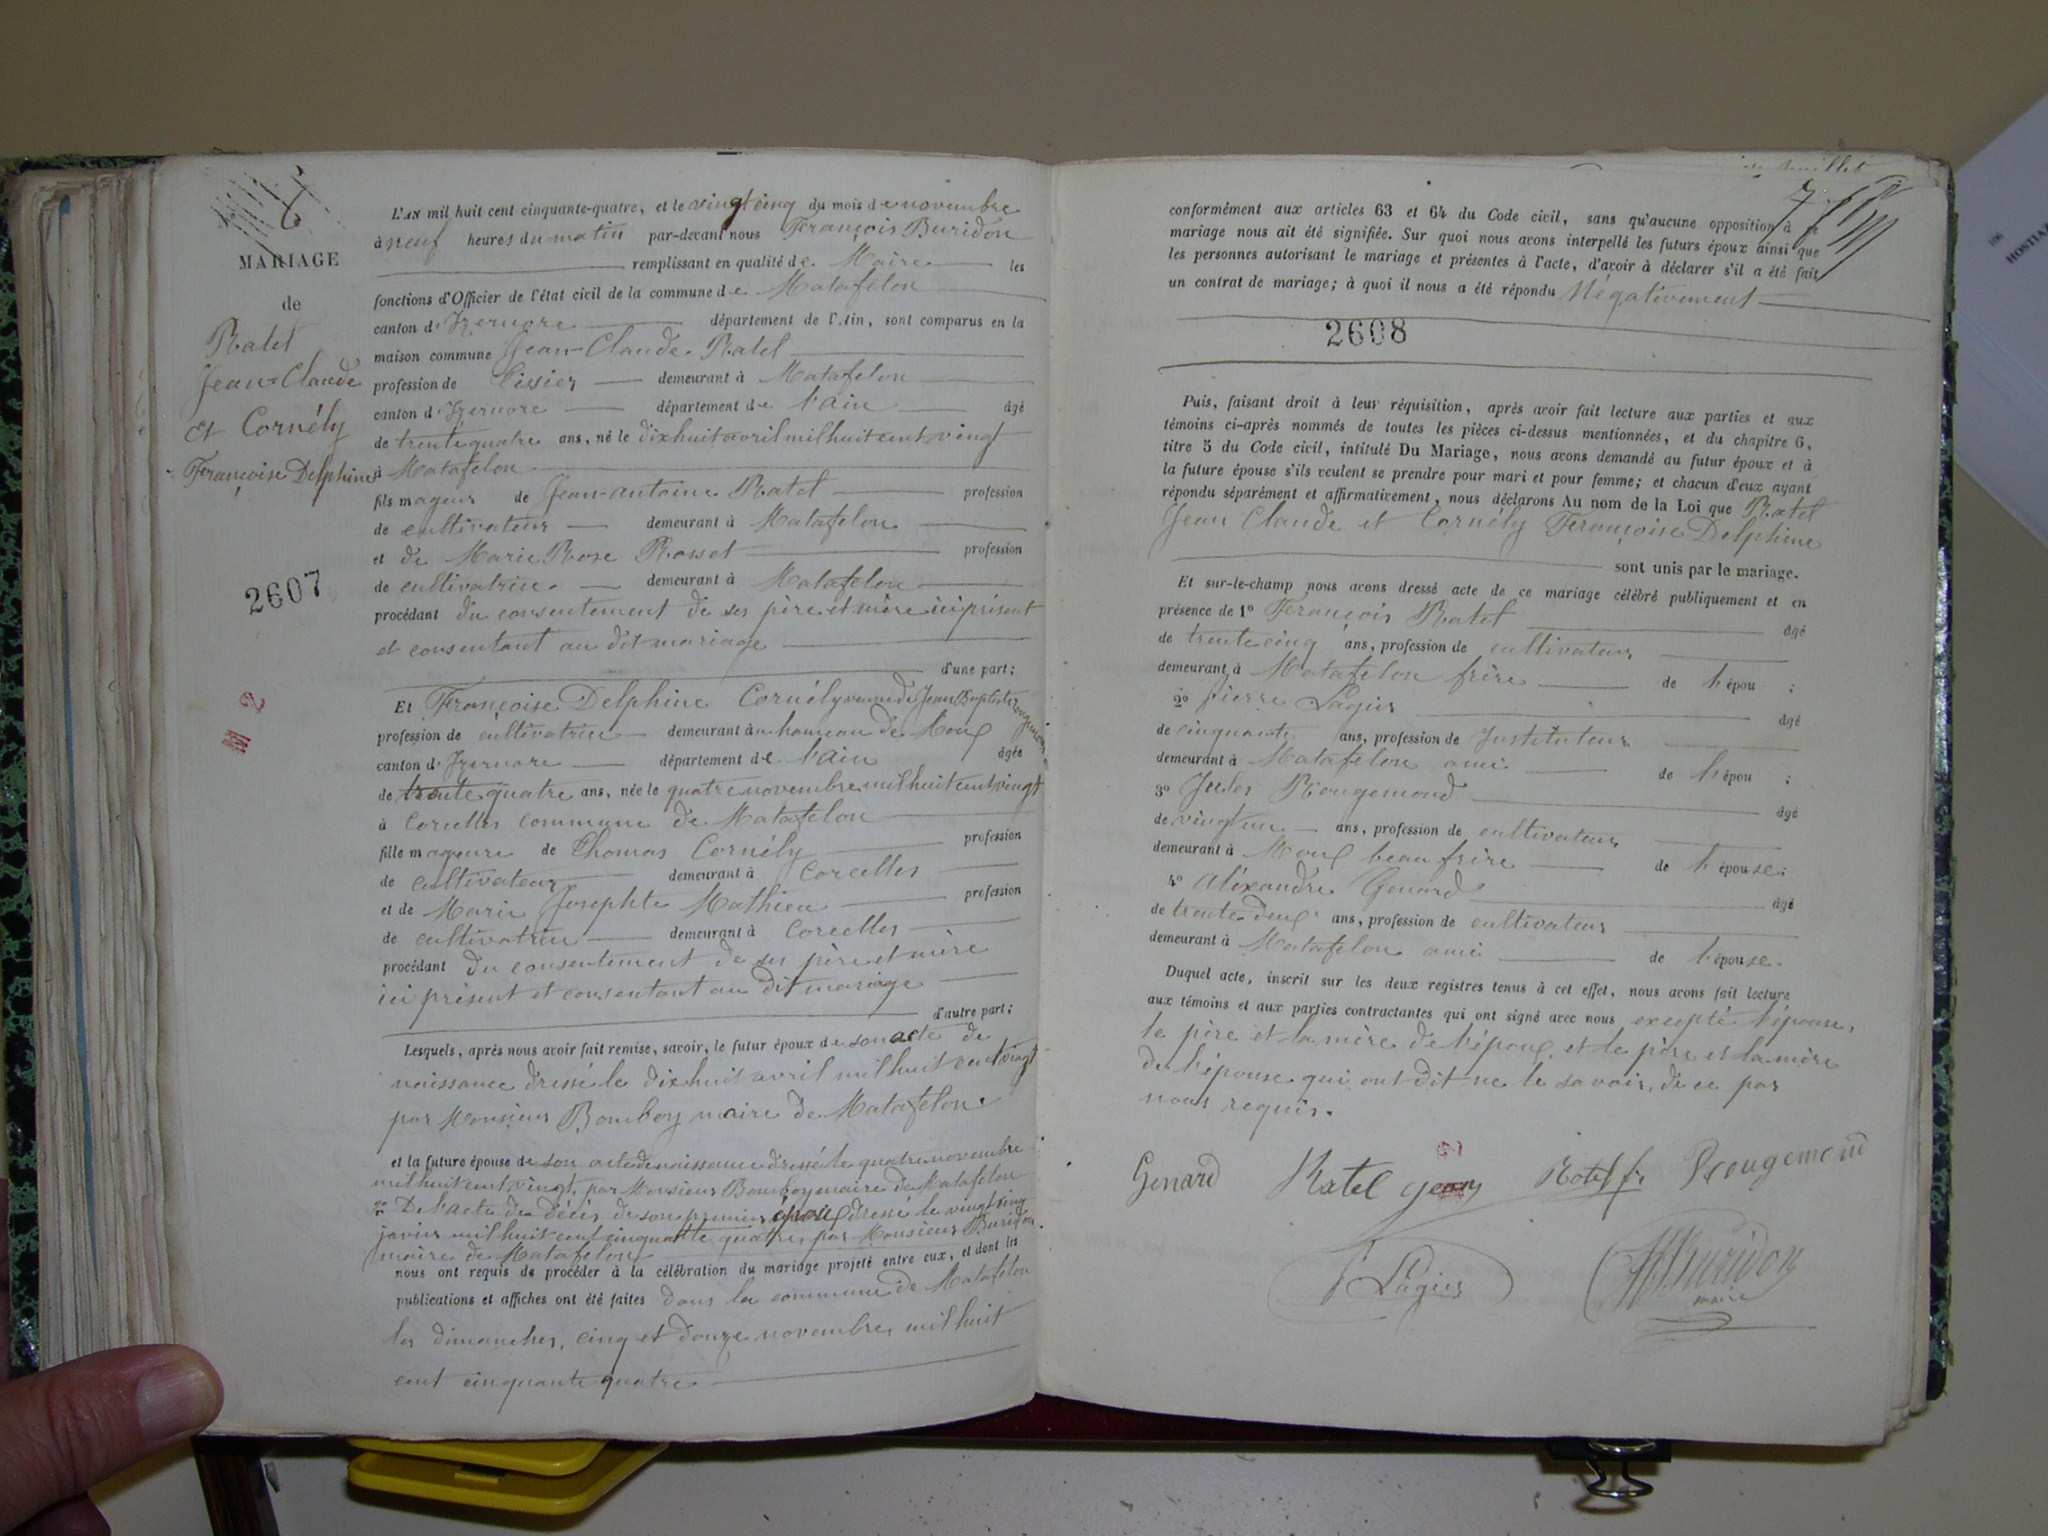 6
MARIAGE
de
Ratel
Jean-Claude
et Cornély
Françoise Delphine
2607
M 2
L'AN mil huit cent cinquante-quatre, et le vingt cinq du mois de novembre
à neuf heures du matin par-devant nous François Buridon
remplissant en qualité de Maire les
fonctions d'Officier de l'état civil de la commune de Matafelon
canton d'Izernore département de l'Ain, sont comparus en la
maison commune Jean-Claude Ratel
profession de Tissier demeurant à Matafelon
canton d'Izernore département de l'ain âgé
de trente quatre ans, né le dix huit avril mil huit cent vingt
à Matafelon
fils mageur de Jean-antoine Ratel profession
de cultivateur demeurant à Matafelon
et de Marie Rose Rosset profession
de cultivatrice demeurant à Matafelon
procédant du consentement de ses père et mère ici présent
et consentant au dit mariage
d'une part;
Et Françoise Delphine Cornély veuve de Jean Baptiste rougemond
profession de cultivatrice demeurant au hameau de Moux
canton d'Izernore département de l'ain âgée
de trente quatre ans, née le quatre novembre mil huit cent vingt
à Corcelles commune de Matafelon
fille mageure de Thomas Cornély profession
de cultivateur demeurant à Corcelles
et de Marie Josephte Mathieu profession
de cultivatrice demeurant à Corcelles
procédant du consentement de ses père et mère
ici présent et consentant au dit mariage
d'autre part;
Lesquels, après nous avoir fait remise, savoir, le futur époux de son acte de
naissance dressé le dix huit avril mil huit cent vingt
par Monsieur Bomboy maire de Matafelon.
et la future épouse de son acte de naissance dressé le quatre novembre
mil huit cent vingt, par Monsieur Bomboy maire de Matafelon
2° De l'acte de décès de son premier époux dressé le vingt cinq
janvier mil huit cent cinquante quatre, par Monsieur Buridon.
maire de Matafelon
nous ont requis de procéder à la célébration du mariage projeté entre eux, et dont les
publications et affiches ont été faites dans la commune de Matafelon
les dimanches, cinq et douze novembre, mil huit
cent cinquante quatre
feuillet
7
conformément aux articles 63 et 64 du Code civil, sans qu'aucune opposition à ce
mariage nous ait été signifiée. Sur quoi nous avons interpellé les futurs époux ainsi que
les personnes autorisant le mariage et présentes à l'acte, d'avoir à déclarer s'il a été fait
un contrat de mariage; à quoi il nous a été répondu Négativement
2608
Puis, faisant droit à leur réquisition, après avoir fait lecture aux parties et aux
témoins ci-après nommés de toutes les pièces ci-dessus mentionnées, et du chapitre 6,
titre 5 du Code civil, intitulé Du Mariage, nous avons demandé au futur époux et à
la future épouse s'ils veulent se prendre pour mari et pour femme; et chacun d'eux ayant
répondu séparément et affirmativement, nous déclarons Au nom de la Loi que Ratel
Jean Claude et Cornély Françoise Delphine
sont unis par le mariage.
Et sur-le-champ nous avons dressé acte de ce mariage célébré publiquement et en
présence de 1° François Ratel âgé
de trente cinq ans, profession de cultivateur
demeurant à Matafelon frère de l'épou ;
2° pierre Lagier âgé
de cinquante ans, profession de Instituteur
demeurant à Matafelon ami de l'épou ;
3° Jules Rougemond âgé
de vingt un ans, profession de cultivateur
demeurant à Moux beau frère de l'épouse;
4° aléxandre Genard âgé
de trente deux ans, profession de cultivateur
demeurant à Matafelon ami de l'épouse.
Duquel acte, inscrit sur les deux registres tenus à cet effet, nous avons fait lecture
aux témoins et aux parties contractantes qui ont signé avec nous excepté l'épouse,
le père et la mère de l'époux et le père et la mère
de l'épouse qui ont dit ne le savoir, de ce par
nous requis.
Genard Ratel Jean Ratel f. Rougemond
Lagier Buridon
maire
HOSTIA